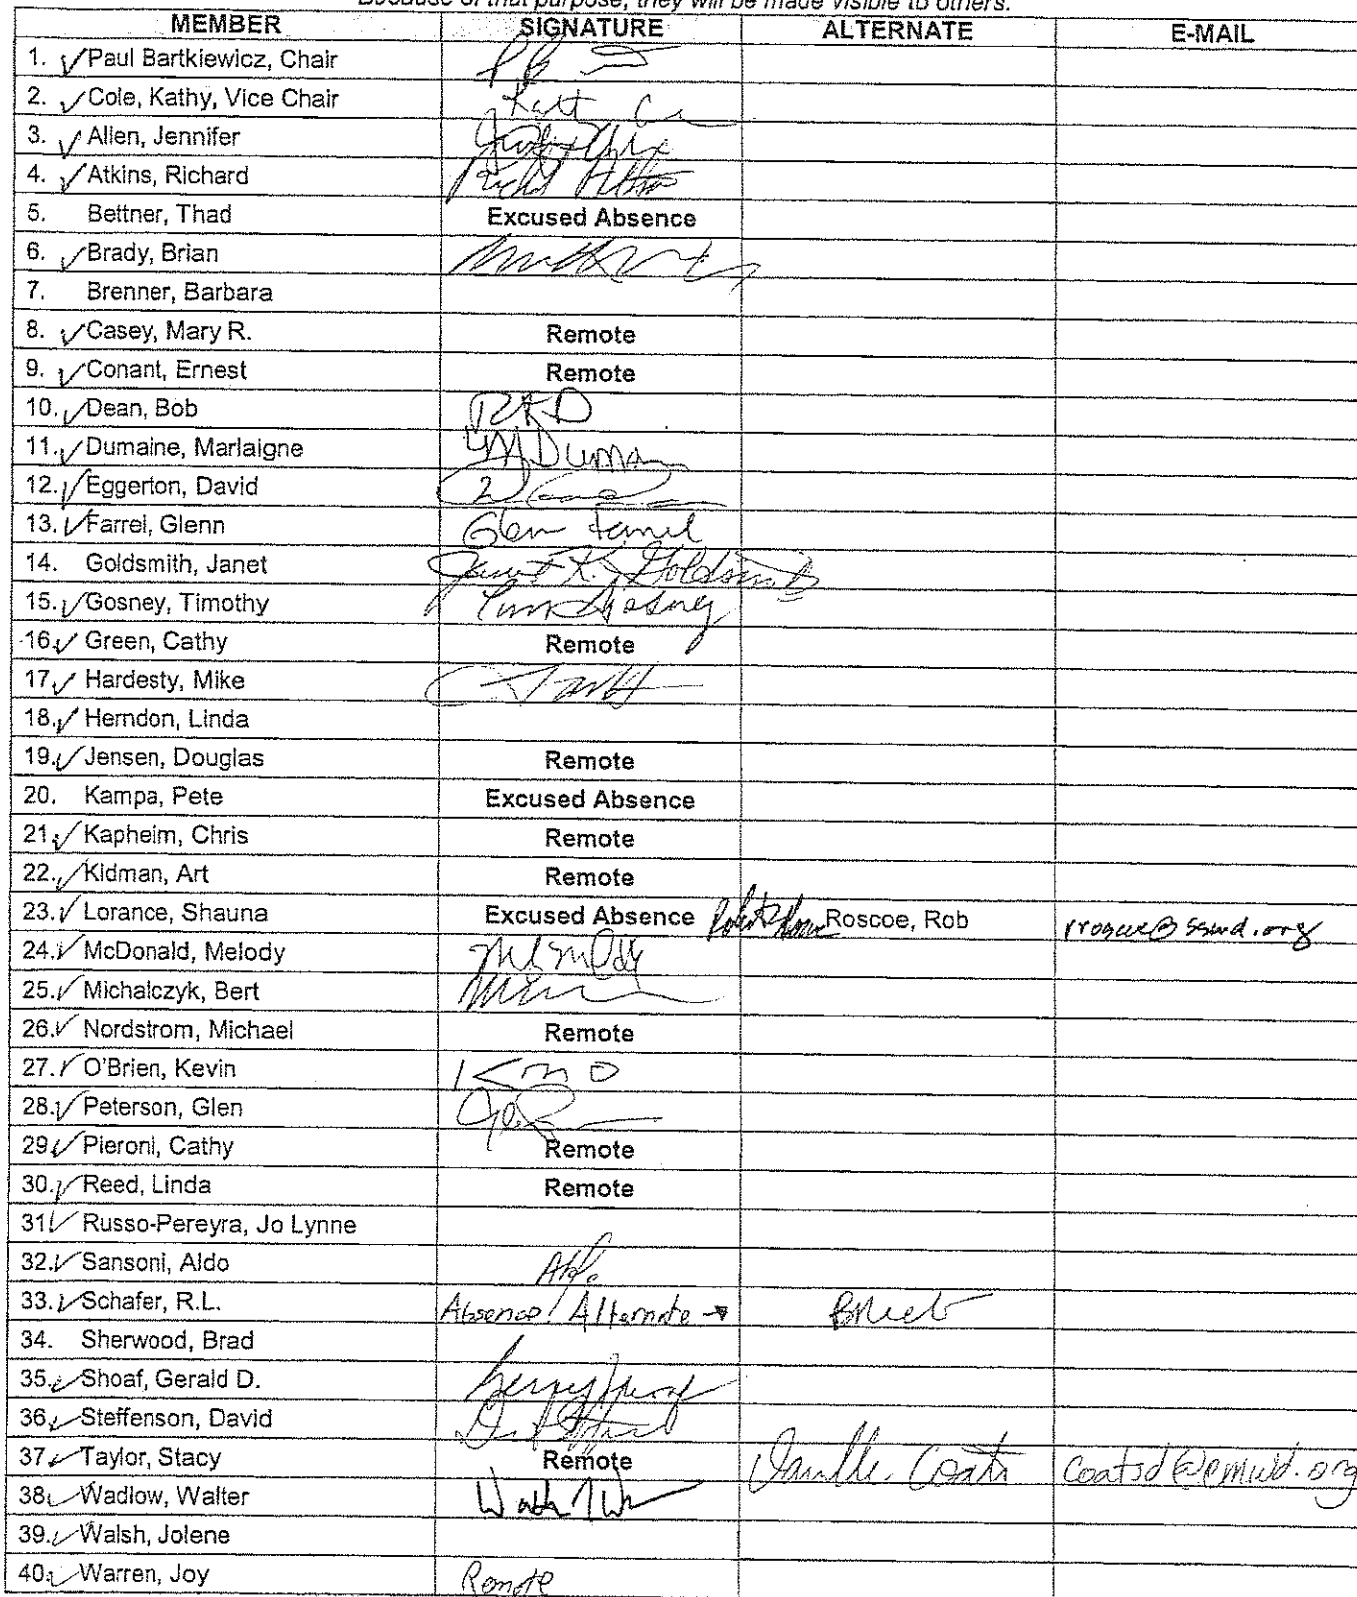 Because of that purpose, they will be made visible to others.
MEMBER SIGNATURE ALTERNATE E-MAIL
1. ✓ Paul Bartkiewicz, Chair
2. ✓ Cole, Kathy, Vice Chair
3. ✓ Allen, Jennifer
4. ✓ Atkins, Richard
5. Bettner, Thad Excused Absence
6. ✓ Brady, Brian
7. Brenner, Barbara
8. ✓ Casey, Mary R. Remote
9. ✓ Conant, Ernest Remote
10. ✓ Dean, Bob
11. ✓ Dumaine, Marlaigne
12. ✓ Eggerton, David
13. ✓ Farrel, Glenn Glenn Farrel
14. Goldsmith, Janet Janet K. Goldsmith
15. ✓ Gosney, Timothy Tim Gosney
16. ✓ Green, Cathy Remote
17. ✓ Hardesty, Mike
18. ✓ Herndon, Linda
19. ✓ Jensen, Douglas Remote
20. Kampa, Pete Excused Absence
21. ✓ Kapheim, Chris Remote
22. ✓ Kidman, Art Remote
23. ✓ Lorance, Shauna Excused Absence Roscoe, Rob rroscoe@sswd.org
24. ✓ McDonald, Melody
25. ✓ Michalczyk, Bert
26. ✓ Nordstrom, Michael Remote
27. ✓ O'Brien, Kevin KMO
28. ✓ Peterson, Glen
29. ✓ Pieroni, Cathy Remote
30. ✓ Reed, Linda Remote
31. ✓ Russo-Pereyra, Jo Lynne
32. ✓ Sansoni, Aldo
33. ✓ Schafer, R.L. Absence/ Alternate →
34. Sherwood, Brad
35. ✓ Shoaf, Gerald D.
36. ✓ Steffenson, David
37. ✓ Taylor, Stacy Remote Danielle Coats coatsd@emwd.org
38. ✓ Wadlow, Walter
39. ✓ Walsh, Jolene
40. ✓ Warren, Joy Remote